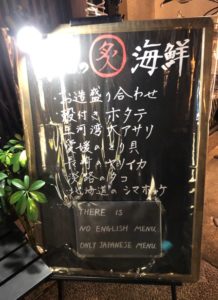 の炙海鮮
お造盛り合わせ
殻付きホタテ
三河湾大アサリ
愛媛のとり貝
長崎のヤリイカ
淡路のタコ
北海道のシマホッケ
THERE IS
NO ENGLISH MENU.
ONLY JAPANESE MENU.